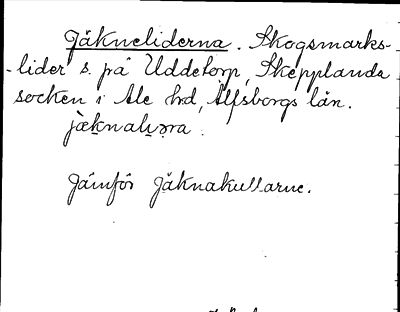 Jäkneliderna. Skogsmarks-
-lider s. på Uddetorp, Skepplanda
socken i Ale hrd, Älfsborgs län.
jæknalı̣əra.
Jämför Jäknakullarne.